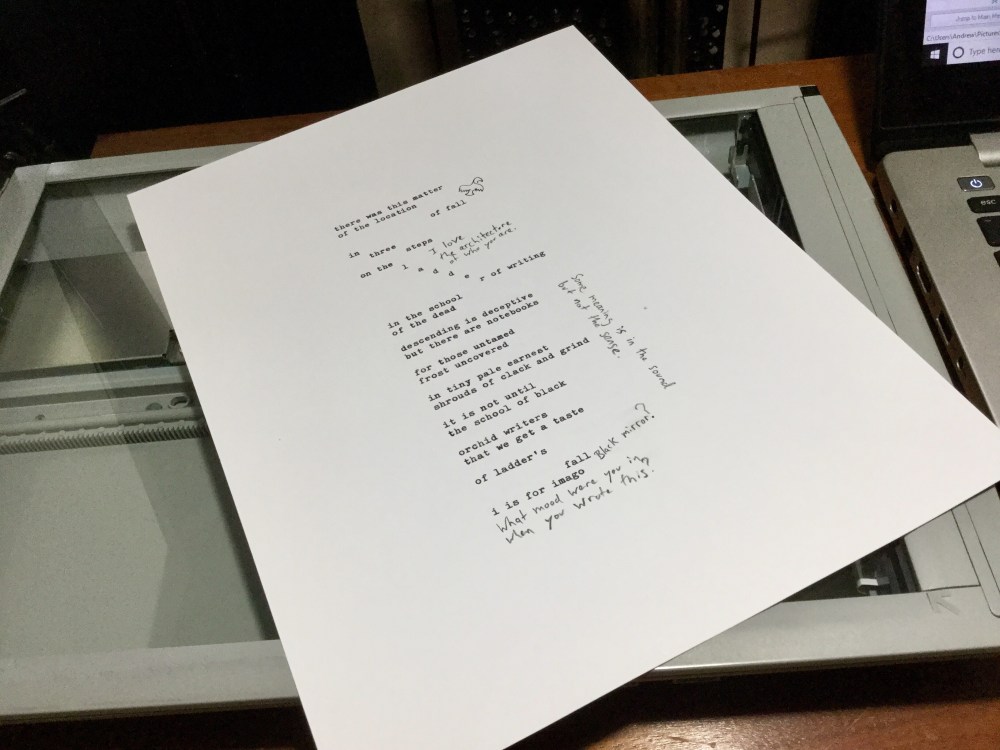 there was this matter
of the location
of fall
in three steps
I love
the architecture
of who you are.
on the l a d d e r of writing
in the school
of the dead
descending is deceptive
but there are notebooks
for those untamed
frost uncovered
in tiny pale earnest
shrouds of clack and grind
it is not until
the school of black
orchid writers
that we get a taste
of ladder's
fall
i is for imago
Some meaning is in the sound
but not the sense.
Black mirror?
What mood were you in
when you wrote this?
Jump to Main
C:\Users\Andrew\Pictures
Type here
esc